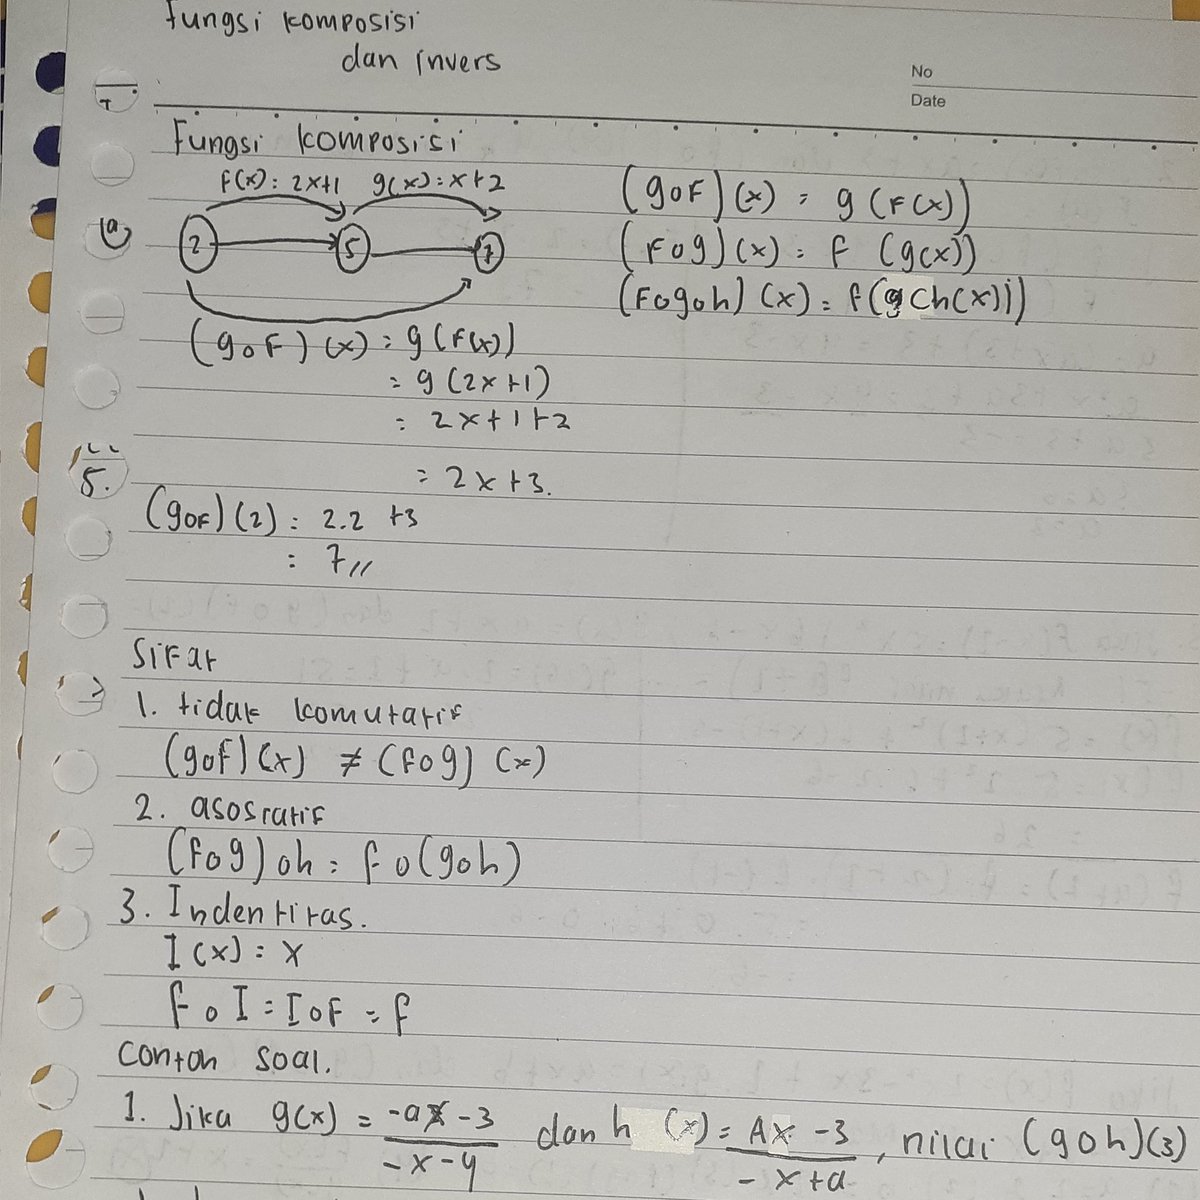 Fungsi komposisi
dan invers
No
Date
Fungsi komposisi
f(x) : 2x+1 g(x) : x+2
2 5 7
(goF)(x) = g(F(x))
(Fog)(x) = f (g(x))
(Fogoh)(x) = f(g(h(x)))
(goF)(x) = g(F(x))
= g(2x+1)
= 2x+1+2
= 2x+3.
5.
(goF)(2) = 2.2 +3
: 7//
Sifat
1. tidak komutatif
(gof)(x) ≠ (fog)(x)
2. asosiatif
(fog)oh = fo(goh)
3. Indentitas.
I(x) = x
foI = IoF = f
Contoh soal.
1. Jika g(x) = (-ax-3)/(-x-4) dan h(x) = (Ax-3)/(-x+a), nilai (goh)(3)